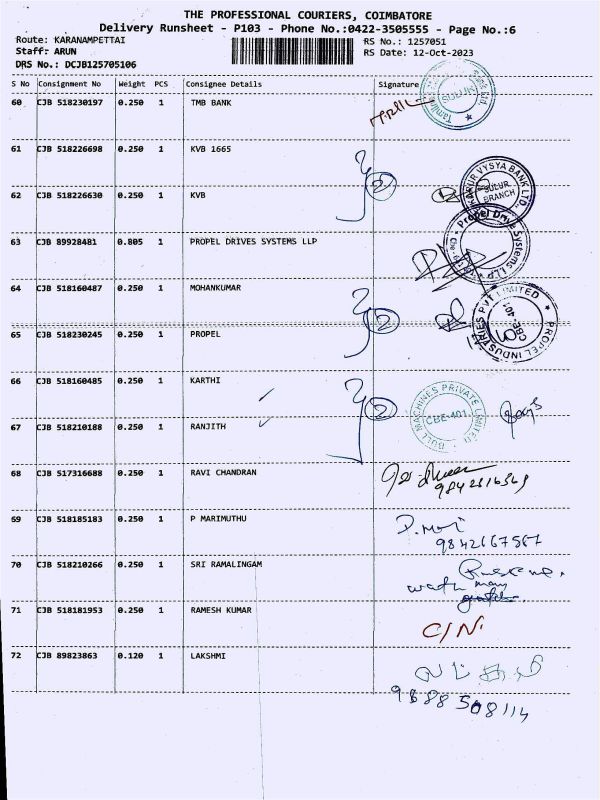 THE PROFESSIONAL COURIERS, COIMBATORE
Delivery Runsheet - P103 - Phone No.:0422-3505555 - Page No.:6
Route: KARANAMPETTAI
RS No.: 1257051
Staff: ARUN
RS Date: 12-Oct-2023
DRS No.: DCJB125705106
S No Consignment No Weight PCS Consignee Details Signature
60 CJB 518230197 0.250 1 TMB BANK
SULUR
61 CJB 518226698 0.250 1 KVB 1665
2
62 CJB 518226630 0.250 1 KVB
KARUR VYSYA BANK LTD.
SULUR
BRANCH
63 CJB 89928481 0.805 1 PROPEL DRIVES SYSTEMS LLP
Propel Drive Systems LLP
64 CJB 518160487 0.250 1 MOHANKUMAR
2
65 CJB 518230245 0.250 1 PROPEL
PROPEL INDUSTRIES PVT LIMITED
CBE-401
66 CJB 518160485 0.250 1 KARTHI
2
67 CJB 518210188 0.250 1 RANJITH
BULL MACHINES PRIVATE LIMITED
CBE-401
68 CJB 517316688 0.250 1 RAVI CHANDRAN
69 CJB 518185183 0.250 1 P MARIMUTHU
9842667567
70 CJB 518210266 0.250 1 SRI RAMALINGAM
71 CJB 518181953 0.250 1 RAMESH KUMAR
C/N
72 CJB 89823863 0.120 1 LAKSHMI
9688508114